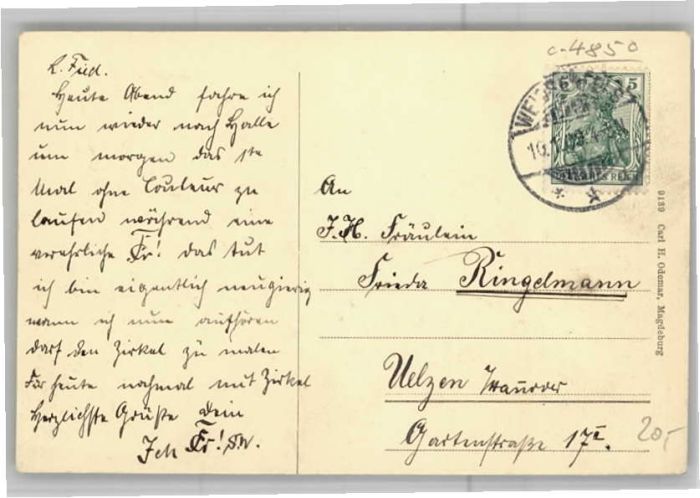 c. 4850
L. Fried.
Heute Abend fahre ich
nun wieder nach Halle
um morgen das 1te
Mal ohne Couleur zu
laufen während eine
verehrliche Fr! das tut
ich bin eigentlich neugierig
wann ich nun aufhören
darf den Zirkel zu malen
Für heute nochmal mit Zirkel
Herzlichste Grüße Dein
Ich Fr! sw.
5 5
WEISSENFELS
An
I. H. Fräulein
Frieda Ringelmann
Uelzen Hannover
Gartenstraße 17 I.
20,-
9189 Carl H. Odemar, Magdeburg